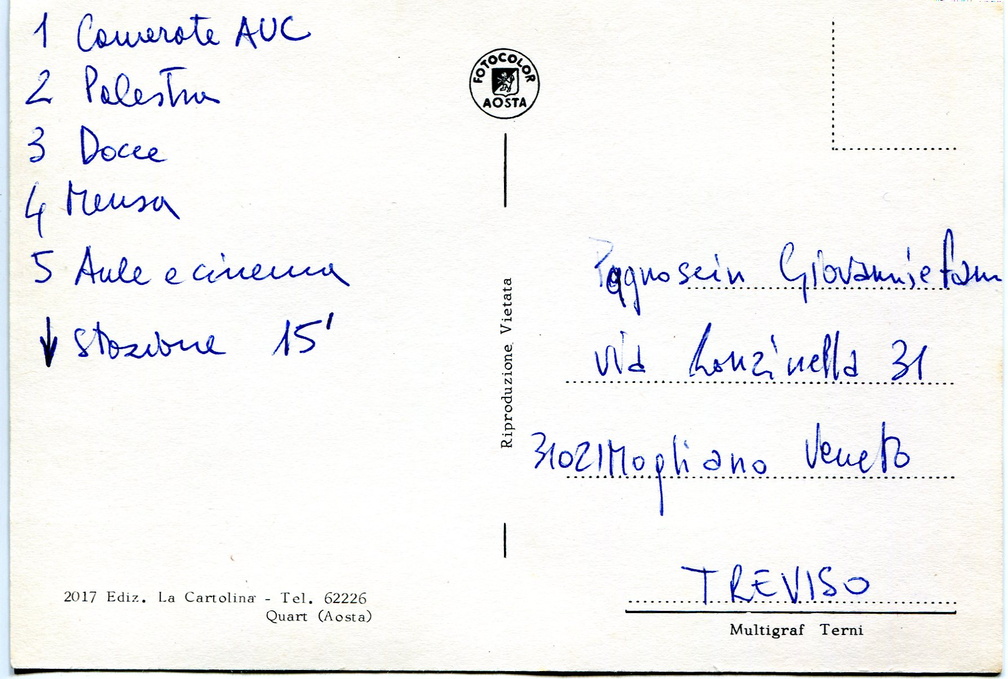 1 Camerate AUC
2 Palestra
3 Docce
4 Mensa
5 Aule e cinema
↓ stazione 15'
2017 Ediz. La Cartolina - Tel. 62226
Quart (Aosta)
FOTOCOLOR
AOSTA
Riproduzione Vietata
Giovanni e fam
via Ronzinella 31
31021 Mogliano Veneto
TREVISO
Multigraf Terni